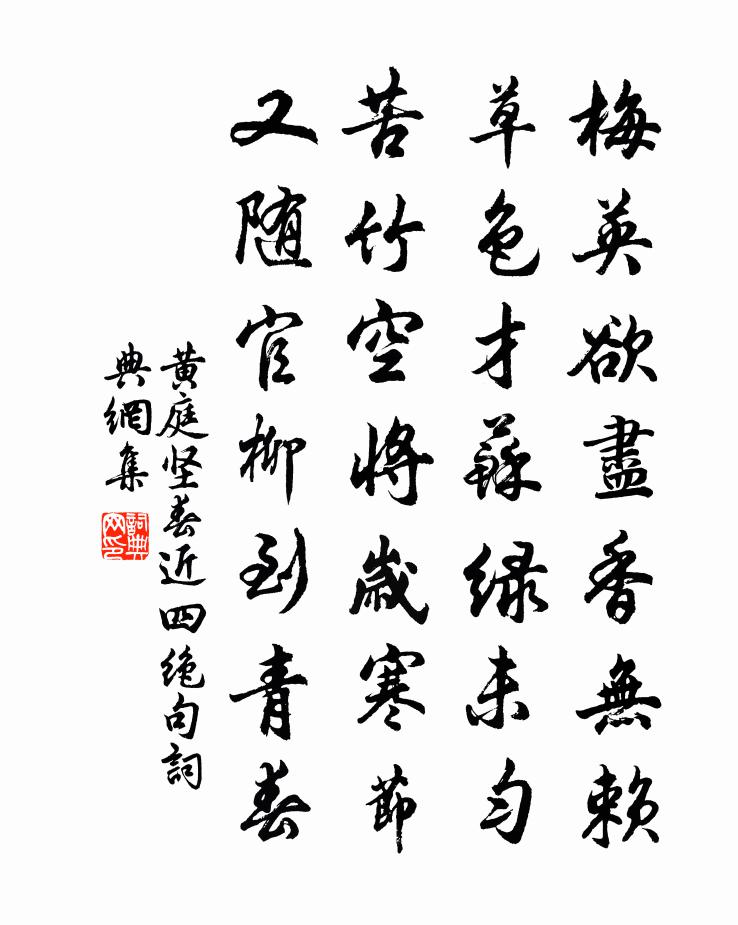 梅英欲盡香無賴
草色才蘇綠未勻
苦竹空將歲寒節
又随官柳到青春
黄庭坚春近四绝句詞
典網集
詞典网印